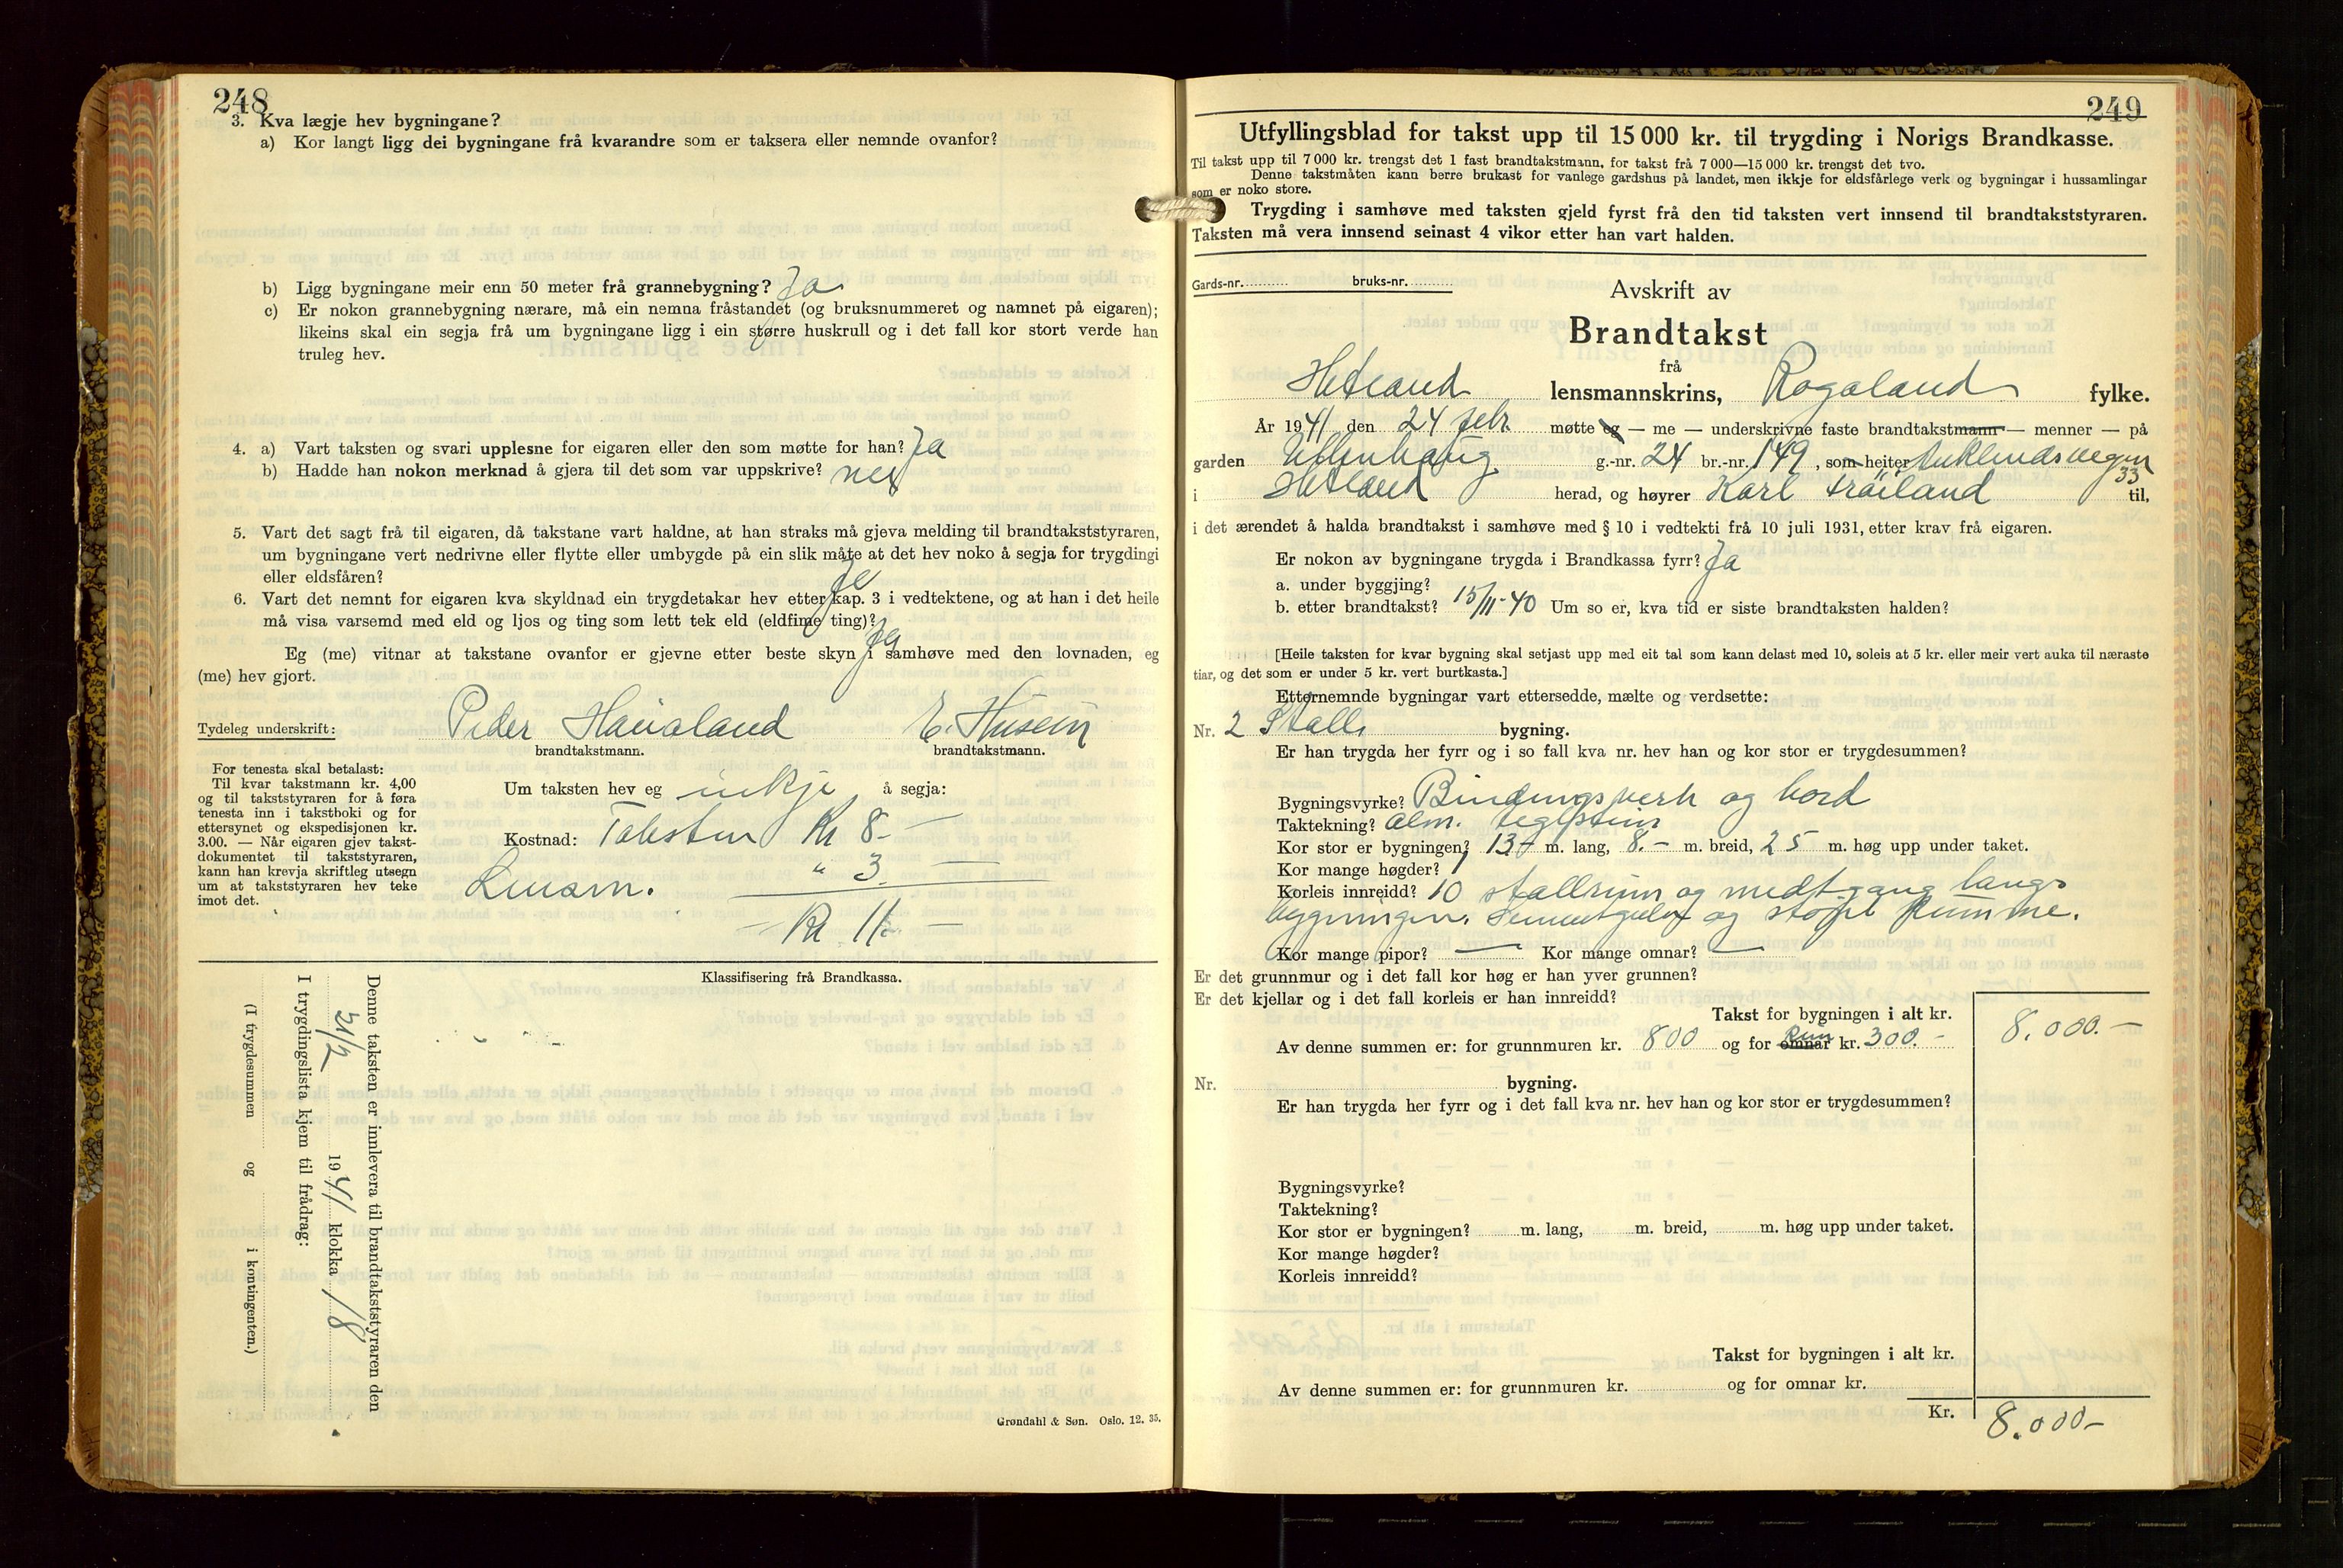 248
3. Kva lægje hev bygningane?
a) Kor langt ligg dei bygningane frå kvarandre som er taksera eller nemnde ovanfor?
b) Ligg bygningane meir enn 50 meter frå grannebygning? Ja
c) Er nokon grannebygning nærare, må ein nemna fråstandet (og bruksnummeret og namnet på eigaren);
likeins skal ein segja frå um bygningane ligg i ein større huskrull og i det fall kor stort verde han
truleg hev.
4. a) Vart taksten og svari upplesne for eigaren eller den som møtte for han? Ja
b) Hadde han nokon merknad å gjera til det som var uppskrive? nei
5. Vart det sagt frå til eigaren, då takstane vart haldne, at han straks må gjeva melding til brandtakststyraren,
um bygningane vert nedrivne eller flytte eller umbygde på ein slik måte at det hev noko å segja for trygdingi
eller eldsfåren? Ja
6. Vart det nemnt for eigaren kva skyldnad ein trygdetakar hev etter kap. 3 i vedtektene, og at han i det heile
må visa varsemd med eld og ljos og ting som lett tek eld (eldfime ting)? Ja
Eg (me) vitnar at takstane ovanfor er gjevne etter beste skyn i samhøve med den lovnaden, eg
(me) hev gjort.
Tydeleg underskrift: Peder Haualand E. Husein
brandtakstmann. brandtakstmann.
For tenesta skal betalast:
Til kvar takstmann kr. 4,00
og til takststyraren for å føra
tenesta inn i takstboki og for
ettersynet og ekspedisjonen kr.
3.00. — Når eigaren gjev takst-
dokumentet til takststyraren,
kann han krevja skriftleg utsegn
um at takststyraren hev teke
imot det.
Um taksten hev eg inkje å segja:
Kostnad: Taksten Kr 8.—
Lensm. " 3 —
Kr 11. —
Klassifisering frå Brandkassa.
Denne taksten er innlevera til brandtakststyraren den
21/2 1941 klokka 18
I trygdingslista kjem til frådrag:
(I trygdesummen og i kontingenten.)
Grøndahl & Søn. Oslo. 12. 35.
249
Utfyllingsblad for takst upp til 15 000 kr. til trygding i Norigs Brandkasse.
Til takst upp til 7 000 kr. trengst det 1 fast brandtakstmann, for takst frå 7 000—15 000 kr. trengst det tvo.
Denne takstmåten kann berre brukast for vanlege gardshus på landet, men ikkje for eldsfårlege verk og bygningar i hussamlingar
som er noko store.
Trygding i samhøve med taksten gjeld fyrst frå den tid taksten vert innsend til brandtakststyraren.
Taksten må vera innsend seinast 4 vikor etter han vart halden.
Gards-nr. bruks-nr.
Avskrift av
Brandtakst
frå
Hetland lensmannskrins, Rogaland fylke.
År 1941 den 24 febr. møtte eg — me — underskrivne faste brandtakstmann — menner — på
garden Ullenhaug g.-nr. 24 br.-nr. 149, som heiter Auklendsvegen
33
i Hetland herad, og høyrer Karl Træiland til,
i det ærendet å halda brandtakst i samhøve med § 10 i vedtekti frå 10 juli 1931, etter krav frå eigaren.
Er nokon av bygningane trygda i Brandkassa fyrr? Ja
a. under byggjing?
b. etter brandtakst? 15/11-40 Um so er, kva tid er siste brandtaksten halden?
[Heile taksten for kvar bygning skal setjast upp med eit tal som kann delast med 10, soleis at 5 kr. eller meir vert auka til næraste
tiar, og det som er under 5 kr. vert burtkasta.]
Etternemnde bygningar vart ettersedde, mælte og verdsette:
Nr. 2 Stall bygning.
Er han trygda her fyrr og i so fall kva nr. hev han og kor stor er trygdesummen?
Bygningsvyrke? Bindingsverk og bord
Taktekning? alm. teglstein
Kor stor er bygningen? 13,- m. lang, 8.- m. breid, 25 m. høg upp under taket.
Kor mange høgder? 1
Korleis innreidd? 10 stallrum og midtgang langs
bygningen. Sementgulv og støpt Rumme.
Kor mange pipor? — Kor mange omnar? —
Er det grunnmur og i det fall kor høg er han yver grunnen?
Er det kjellar og i det fall korleis er han innreidd?
Takst for bygningen i alt kr. 8.000.—
Av denne summen er: for grunnmuren kr. 800 og for omnar kr. 300.-
Nr. bygning.
Er han trygda her fyrr og i det fall kva nr. hev han og kor stor er trygdesummen?
Bygningsvyrke?
Taktekning?
Kor stor er bygningen? m. lang, m. breid, m. høg upp under taket.
Kor mange høgder?
Korleis innreidd?
Takst for bygningen i alt kr.
Av denne summen er: for grunnmuren kr. og for omnar kr.
Kr. 8.000-